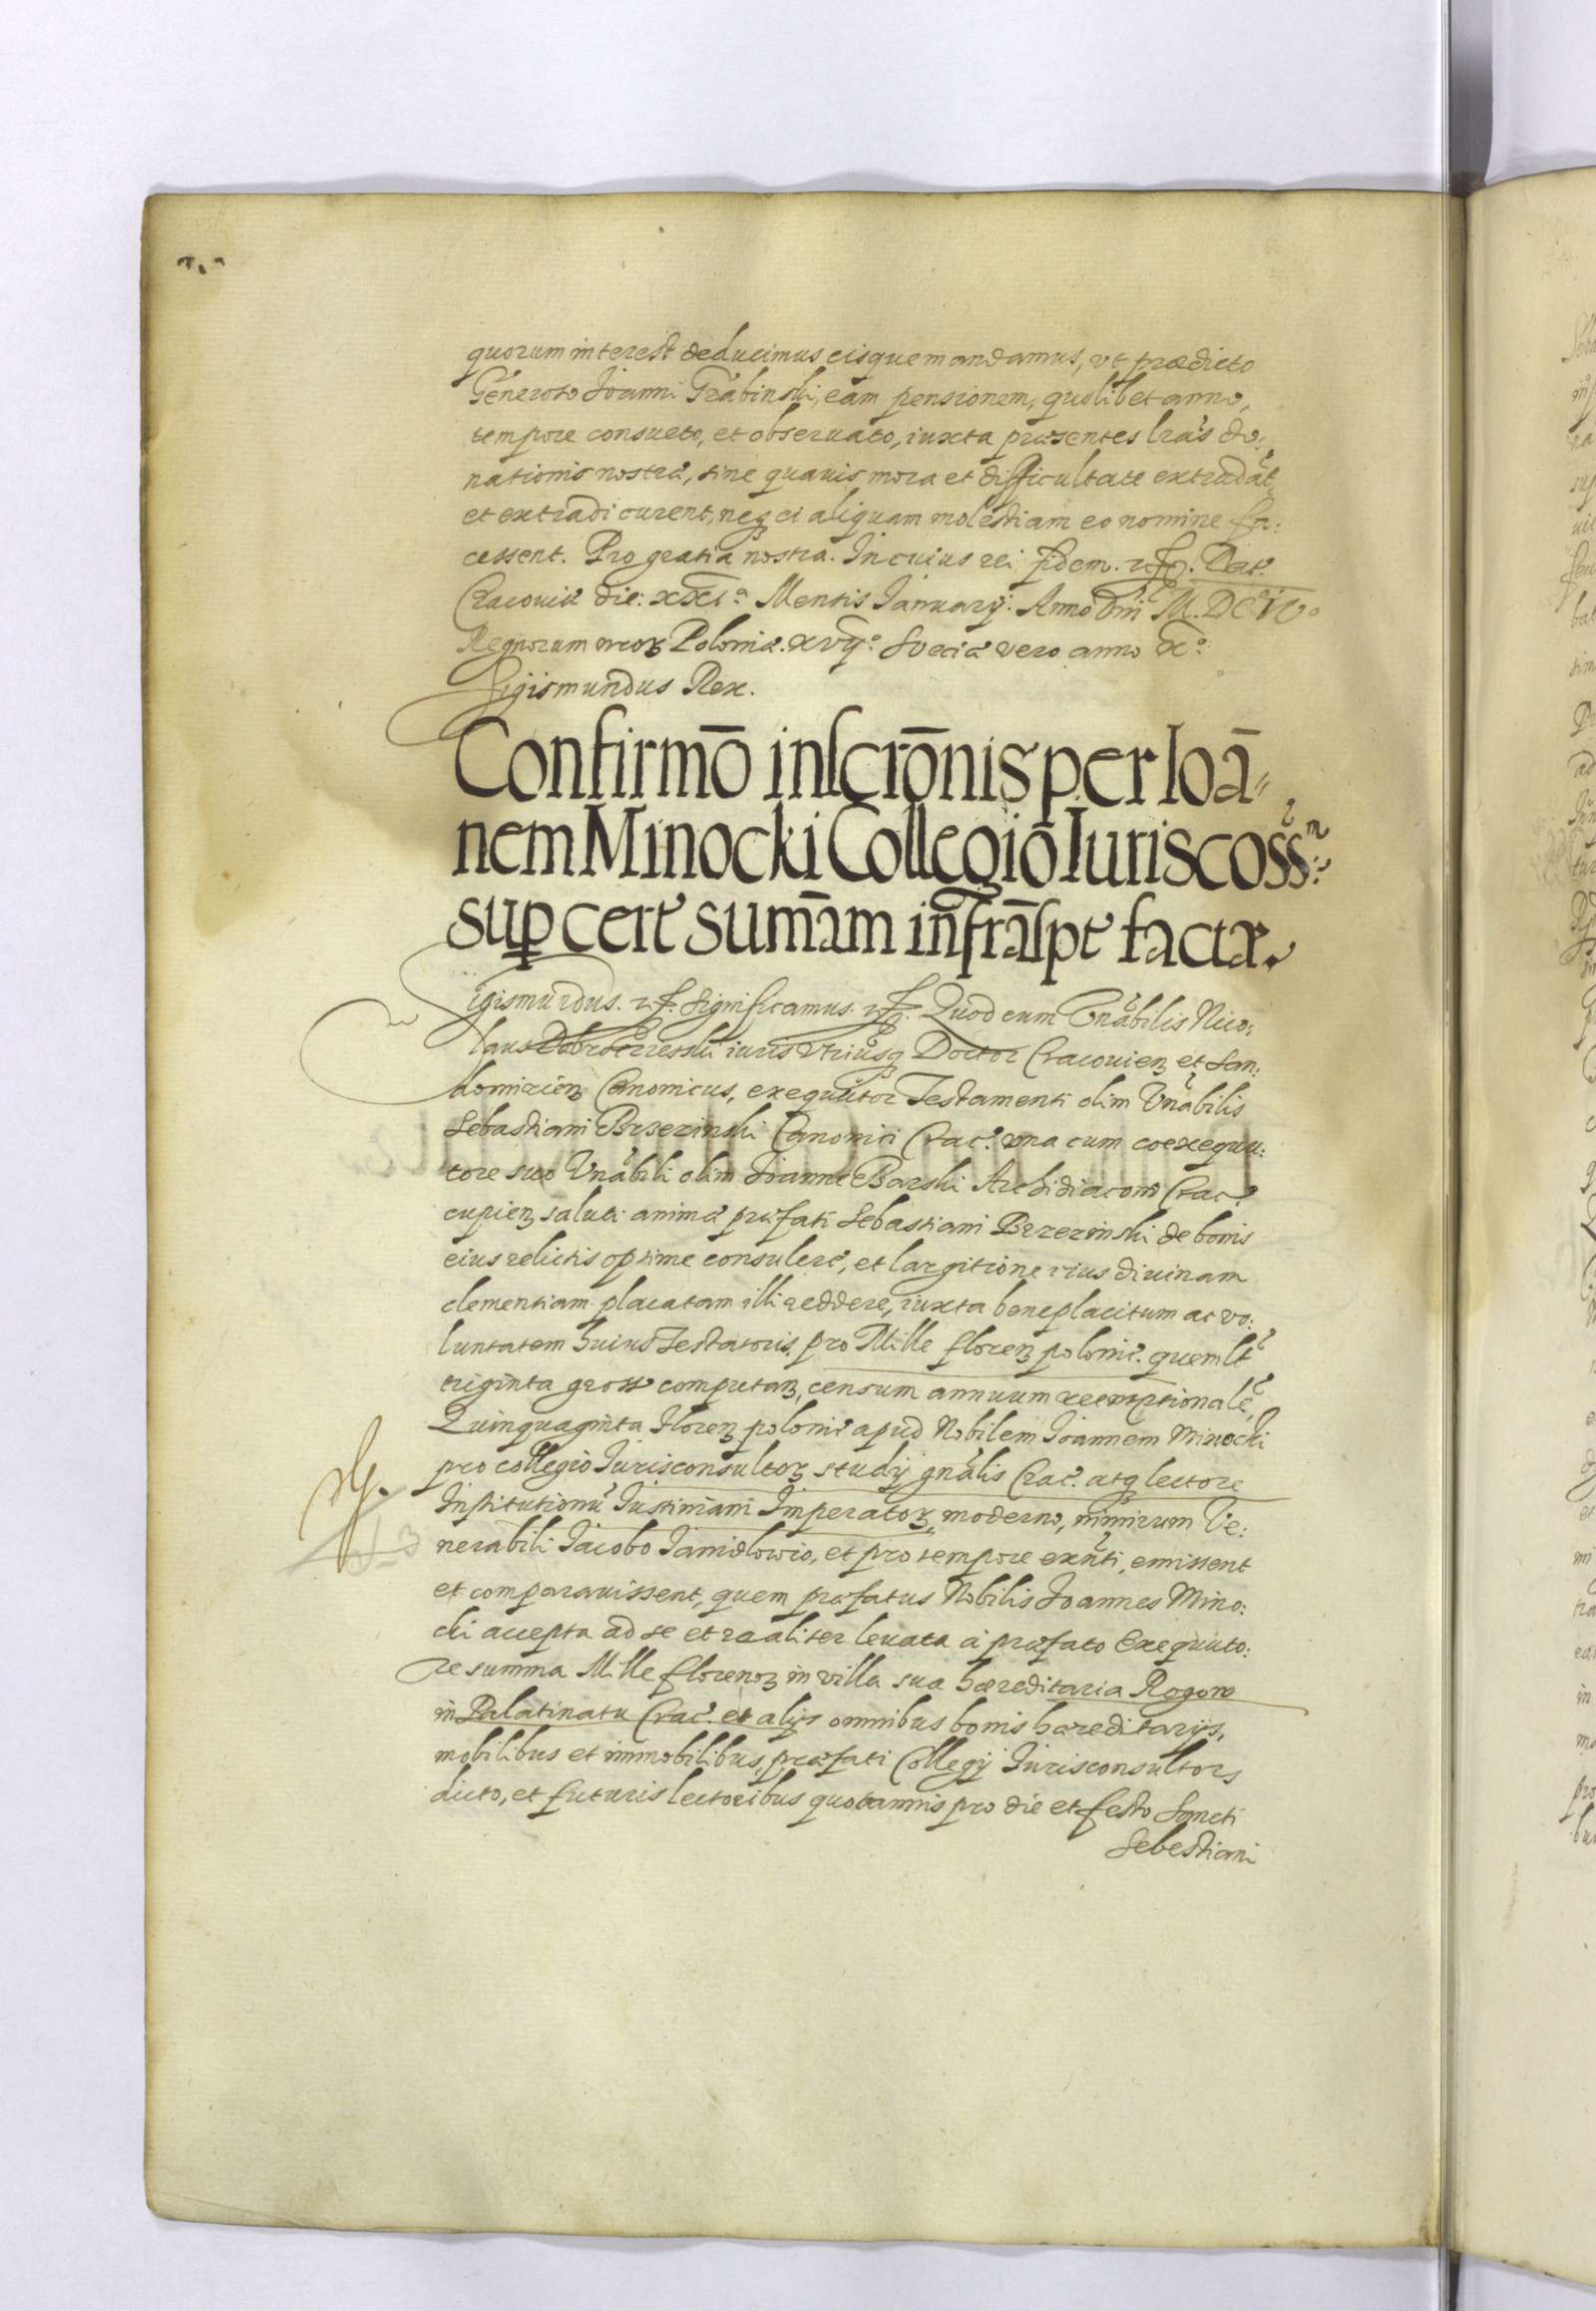 quorum interest deducimus eisque mandamus, vt prædicto
Generoso Joanni Grabinski, eam pensionem, quolibet anno,
tempore consueto, et obseruato, iuxta præsentes lras do:
nationis nostræ, sine quauis mora et difficultate extradāt
et extradi curent, neqꝫ ei aliquam molestiam eo nomine fa:
cessent. Pro gratia nostra. In cuius rei fidem. Dat.
Cracouiæ die: xxiᵃ Mensis Januarij. Anno Dni M.DC IVᵒ
Regnorum nroꝝ Poloniæ. xvijᵒ Sveciæ vero anno xᵒ
Sigismundus Rex.
Confirmō inscrōnis per Ioā⸗
nem Minocki Collegiō Iuriscoss
suꝑ cert sum̄am infrāspt factæ.
Sigismundus. Significamus. Quod cum Vnabilis Nico:
laus iuris vtriusqꝫ Doctor Cracouieꝫ et San:
domirieꝫ Canonicus, exequutor Testamenti olim Vnabilis
Sebastiani Brzezinski Canonici Crac. vna cum coexequu:
tore suo Vnabili olim Joanne Barski Archidiacono Crac.
cupieꝫ saluti animæ præfati Sebastiani Brzezinski de bonis
eius relictis optime consulere, et largitione eius diuinam
clementiam placatam illi reddere, iuxta beneplacitum ac vo:
luntatem huius Testatoris, pro Mille floreꝫ polonic. quemlt
triginta gross computaꝫ, censum annuum reemptionale,
Quinquaginta Floreꝫ polonic apud Nobilem Joannem Minocki
pro collegio Jurisconsultoꝝ studij gnalis Crac. atqꝫ lectore
Institutionū Justiniani Imperatoꝝ, moderno, nimirum Ve:
nerabili Jacobo Janidlowio, et pro tempore exnti, emissent
et comparauissent, quem præfatus Nobilis Joannes Mino:
cki accepta ad se et realiter leuata à præfato Exequuto:
re summa Mille florenoꝝ in villa sua hæreditaria Rogow
in Palatinatu Crac. et alijs omnibus bonis hæreditarijs,
mobilibus et immobilibus, præfati Collegij Jurisconsultoꝝ
dicto, et futuris lectoribus quotannis pro die et festo Sancti
Sebestiani